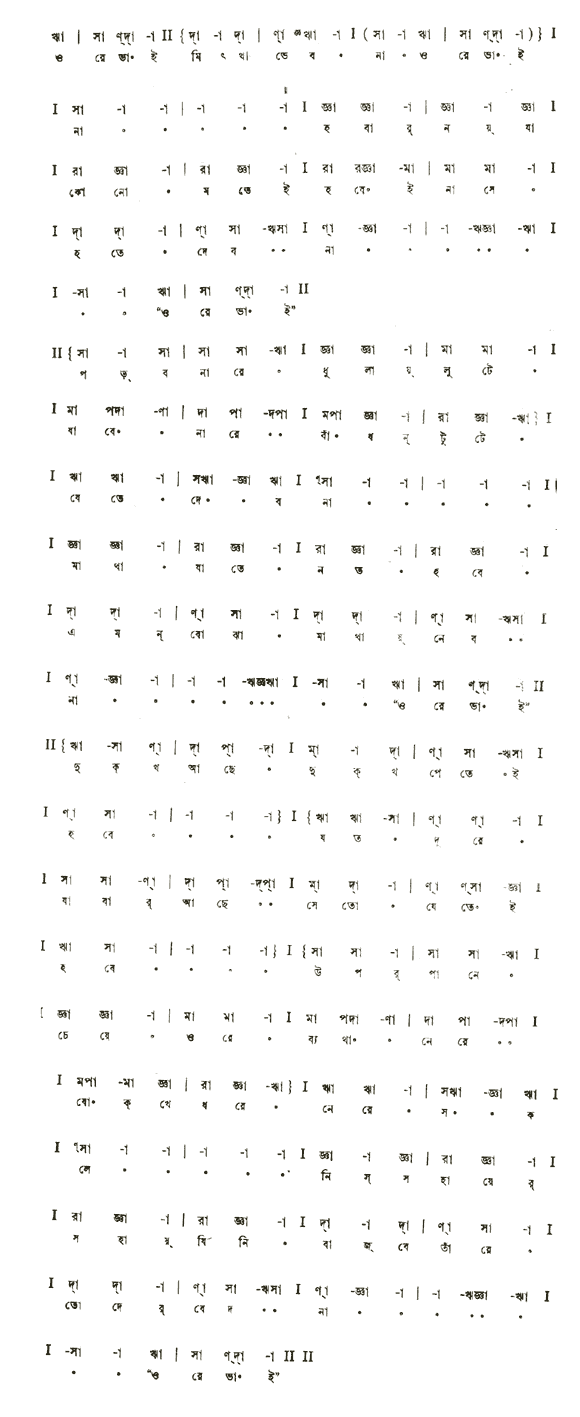 ঋা | সা ণ্‌দা্ -া II {দা্ -া দা্ | ণা্ ᵃঋা -া I (সা -া ঋা | সা ণ্‌দা্ -া)} I
ও রে ভা॰ ই মি ৎ থা ভে ব ॰ না ॰ ও রে ভা॰ ই
I সা -া -া | -া -া -া I জ্ঞা জ্ঞা -া | জ্ঞা -া জ্ঞা I
না ॰ ॰ ॰ ॰ ॰ হ বা র্ ন য়্ যা
I রা জ্ঞা -া | রা জ্ঞা -া I রা রজ্ঞা -মা | মা মা -া I
কো নো ॰ ম তে ই হ বে॰ ই না সে ॰
I দা্ দা্ -া | ণা্ সা -ঋসা I ণা্ -জ্ঞা -া | -া -ঋজ্ঞা -ঋা I
হ তে ॰ দে ব ॰॰ না ॰ ॰ ॰ ॰॰ ॰
I -সা -া ঋা | সা ণ্‌দা্ -া II
॰ ॰ "ও রে ভা॰ ই"
II {সা -া সা | সা সা -ঋা I জ্ঞা জ্ঞা -া | মা মা -া I
প ড়্ ব না রে ॰ ধু লা য়্ লু টে ॰
I মা পদা -ণা | দা পা -দপা I মপা জ্ঞা -া | রা জ্ঞা -ঋা} I
যা বে॰ ॰ না রে ॰॰ বাঁ॰ ধ ন্ টু টে ॰
I ঋা ঋা -া | সঋা -জ্ঞা ঋা I ᶦসা -া -া | -া -া -া I
যে তে ॰ দে॰ ॰ ব না ॰ ॰ ॰ ॰ ॰
I জ্ঞা জ্ঞা -া | রা জ্ঞা -া I রা জ্ঞা -া | রা জ্ঞা -া I
মা থা ॰ যা তে ॰ ন ত ॰ হ বে ॰
I দা্ দা্ -া | ণা্ সা -া I দা্ দা্ -া | ণা্ সা -ঋসা I
এ ম ন্ বো ঝা ॰ মা থা য়্ নে ব ॰॰
I ণা্ -জ্ঞা -া | -া -া -ঋজ্ঞঋা I -সা -া ঋা | সা ণ্‌দা্ -া II
না ॰ ॰ ॰ ॰ ॰॰॰ ॰ ॰ "ও রে ভা॰ ই"
II {ঋা -সা ণা্ | দা্ পা্ -দা্ I মা্ -া দা্ | ণা্ সা -ঋসা I
দু ক্ খ আ ছে ॰ দু ক্ খ পে তে ॰ই
I ণা্ সা -া | -া -া -া} I {ঋা ঋা -সা | ণা্ ণা্ -া I
হ বে ॰ ॰ ॰ ॰ য ত ॰ দূ রে ॰
I সা সা -ণা্ | দা্ পা্ -দ্‌পা্ I মা্ দা্ -া | ণা্ ণ্‌সা -জ্ঞা I
যা বা র্ আ ছে ॰॰ সে তো ॰ যে তে॰ ই
I ঋা সা -া | -া -া -া} I {সা সা -া | সা সা -ঋা I
হ বে ॰ ॰ ॰ ॰ উ প র্ পা নে ॰
I জ্ঞা জ্ঞা -া | মা মা -া I মা পদা -ণা | দা পা -দপা I
চে য়ে ॰ ও রে ॰ ব্য থা॰ ॰ নে রে ॰॰
I মপা -মা জ্ঞা | রা জ্ঞা -ঋা} I ঋা ঋা -া | সঋা -জ্ঞা ঋা I
বো॰ ক্ খে ধ রে ॰ নে রে ॰ স॰ ॰ ক
I ᶦসা -া -া | -া -া -া I জ্ঞা -া জ্ঞা | রা জ্ঞা -া I
লে ॰ ॰ ॰ ॰ ॰ নি স্ স হা য়ে র্
I রা জ্ঞা -া | রা জ্ঞা -া I দা্ -া দা্ | ণা্ সা -া I
স হা য়্ যি নি ॰ বা জ্ বে তাঁ রে ॰
I দা্ দা্ -া | ণা্ সা -ঋসা I ণা্ -জ্ঞা -া | -া -ঋজ্ঞা -ঋা I
তো দে র্ বে দ ॰॰ না ॰ ॰ ॰ ॰॰ ॰
I -সা -া ঋা | সা ণ্‌দা্ -া II II
॰ ॰ "ও রে ভা॰ ই"